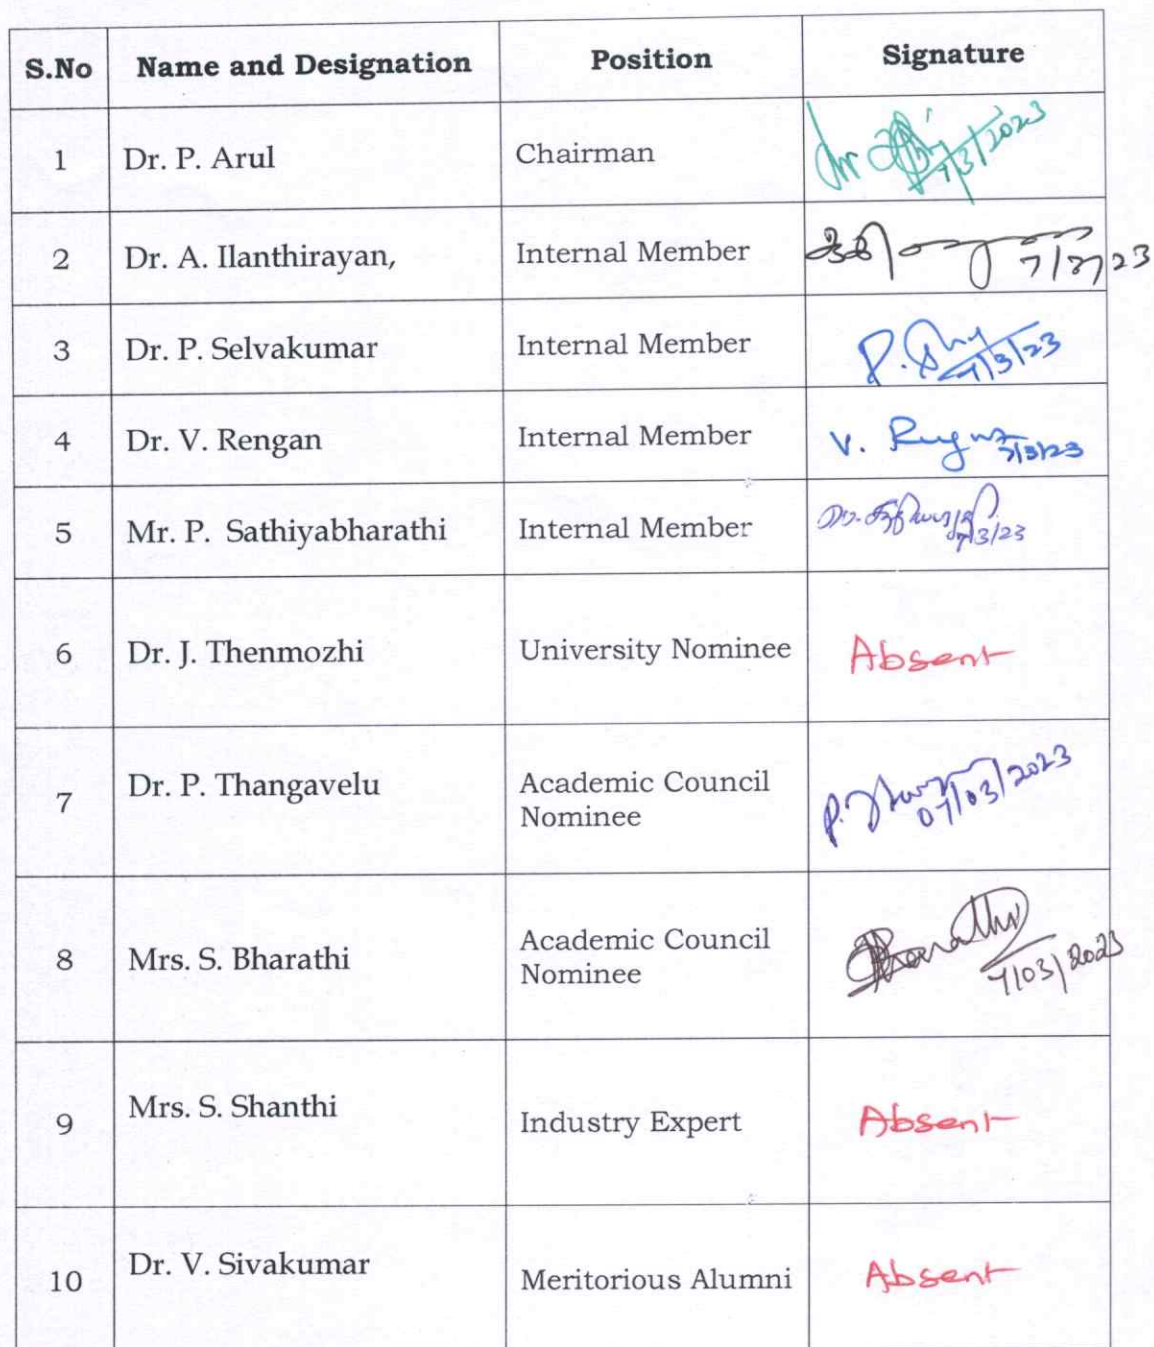 S.No Name and Designation Position Signature
1 Dr. P. Arul Chairman 7/3/2023
2 Dr. A. Ilanthirayan, Internal Member 7/3/23
3 Dr. P. Selvakumar Internal Member P. 7/3/23
4 Dr. V. Rengan Internal Member V. 7/3/23
5 Mr. P. Sathiyabharathi Internal Member 7/3/23
6 Dr. J. Thenmozhi University Nominee Absent
7 Dr. P. Thangavelu Academic Council
Nominee P. 07/03/2023
8 Mrs. S. Bharathi Academic Council
Nominee Bharathi 7/03/2023
9 Mrs. S. Shanthi Industry Expert Absent
10 Dr. V. Sivakumar Meritorious Alumni Absent